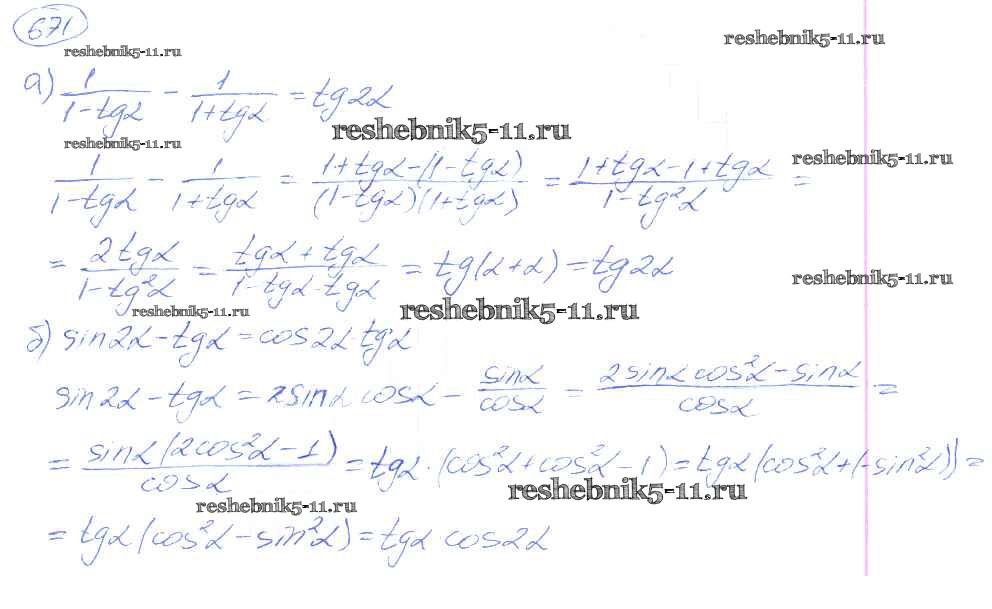 671
reshebnik5-11.ru
reshebnik5-11.ru
а) 1/(1-tgα) - 1/(1+tgα) = tg2α
reshebnik5-11.ru
reshebnik5-11.ru
reshebnik5-11.ru
1/(1-tgα) - 1/(1+tgα) = (1+tgα-(1-tgα))/((1-tgα)(1+tgα)) = (1+tgα-1+tgα)/(1-tg²α) =
= 2tgα/(1-tg²α) = (tgα+tgα)/(1-tgα·tgα) = tg(α+α) = tg2α
reshebnik5-11.ru
reshebnik5-11.ru
reshebnik5-11.ru
б) sin2α-tgα=cos2α·tgα
sin2α-tgα = 2sinα cosα - sinα/cosα = (2sinα cos²α-sinα)/cosα =
= sinα(2cos²α-1)/cosα = tgα·(cos²α+cos²α-1) = tgα(cos²α+(-sin²α)) =
reshebnik5-11.ru
reshebnik5-11.ru
= tgα(cos²α-sin²α) = tgα cos2α